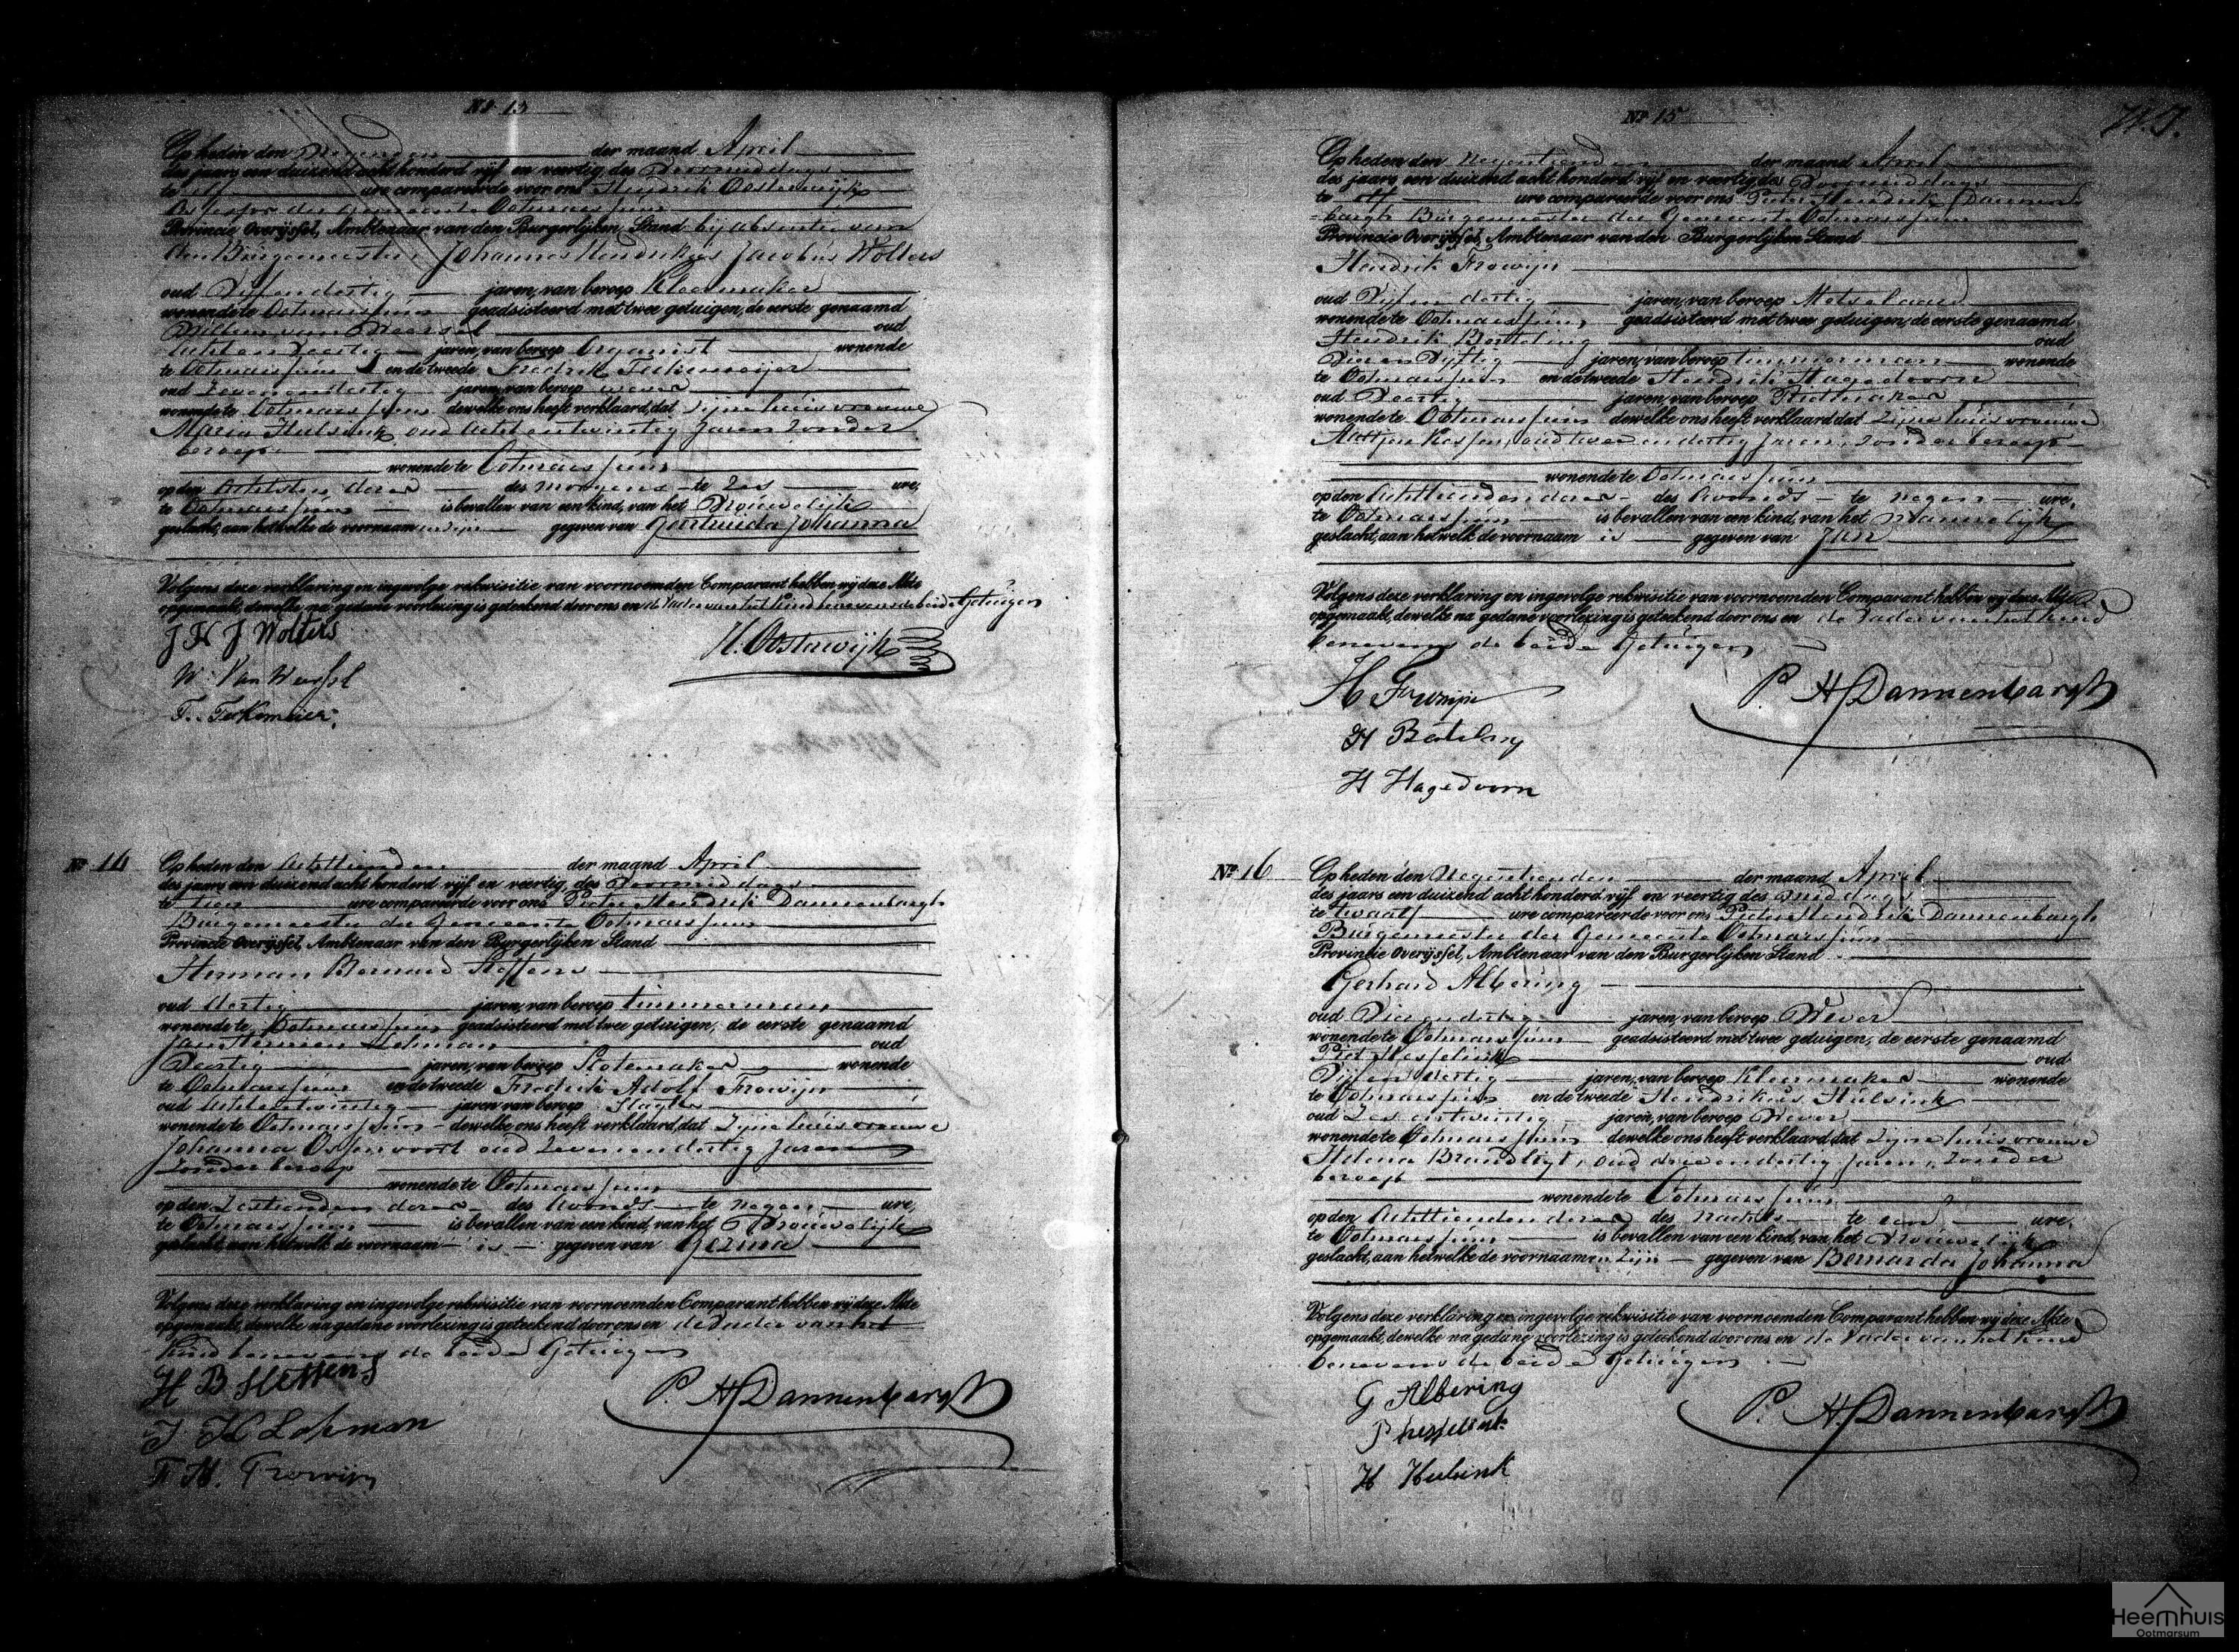 Nº 13
Op heden den Negenden der maand April
des jaars een duizend acht honderd vijf en veertig, des Voormiddags
te elf ure compareerde voor ons Hendrik Oosterwijk
Assessor der Gemeente Ootmarssum
Provincie Overijssel, Ambtenaar van den Burgerlijken Stand bij absentie van
den Burgemeester, Johannes Hendrikus Jacobus Wolters
oud Vijfendertig jaren, van beroep Kleermaker
wonende te Ootmarssum geadsisteerd met twee getuigen, de eerste genaamd
Willem van Weersel oud
Achtenveertig jaren, van beroep Organist wonende
te Ootmarssum en de tweede Fredrik
oud Zevenendertig jaren, van beroep wever
wonende te Ootmarssum dewelke ons heeft verklaard, dat zijne huisvrouwe
Maria Hulsink, oud Achtentwintig Jaren zonder
beroep
wonende te Ootmarssum
op den Achtsten dezer des morgens te zes ure,
te Ootmarssum is bevallen van een kind, van het Vrouwelijk
geslacht, aan hetwelke de voornaamen zijn gegeven van Geertruida Johanna
Volgens deze verklaring en ingevolge rekwisitie van voornoemden Comparant hebben wij deze Akte
opgemaakt, dewelke na gedane voorlezing is geteekend door ons en de Vader van het Kind benevens de beide Getuigen
J H J Wolters
H. Oosterwijk
W. Van
F.
Nº 14
Op heden den Achttienden der maand April
des jaars een duizend acht honderd vijf en veertig, des Voormiddags
te tien ure compareerde voor ons Pieter Hendrik Dannenbargh
Burgemeester der Gemeente Ootmarssum
Provincie Overijssel, Ambtenaar van den Burgerlijken Stand
Herman Bernard Steffens
oud dertig jaren, van beroep timmerman
wonende te Ootmarssum geadsisteerd met twee getuigen, de eerste genaamd
Jan Herman Lohman oud
Veertig jaren, van beroep Slotemaker wonende
te Ootmarssum en de tweede Fredrik Adolf Frowijn
oud Achtentwintig jaren van beroep Slagter
wonende te Ootmarssum dewelke ons heeft verklaard, dat Zijne huisvrouwe
Johanna Ossenvoort oud Zevenendertig Jaren
Zonder beroep
wonende te Ootmarssum
op den Zestienden dezer des Avonds te negen ure,
te Ootmarssum is bevallen van een kind, van het Vrouwelijk
geslacht, aan hetwelk de voornaam is gegeven van Gezina
Volgens deze verklaring en ingevolge rekwisitie van voornoemden Comparant hebben wij deze Akte
opgemaakt, dewelke na gedane voorlezing is geteekend door ons en de Vader van het
Kind benevens de beide Getuigen
H B Steffens
P. H. Dannenbargh
J H Lohman
F A. Frowijn
Nº 15
Op heden den Negentienden der maand April
des jaars een duizend acht honderd vijf en veertig des Voormiddags
te elf ure compareerde voor ons Pieter Hendrik Dannen
bargh Burgemeester der Gemeente Ootmarssum
Provincie Overijssel, Ambtenaar van den Burgerlijken Stand
Hendrik Frowijn
oud Vijfendertig jaren, van beroep Metselaar
wonende te Ootmarssum geadsisteerd met twee getuigen, de eerste genaamd
Hendrik Berteling oud
Vierenvijftig jaren, van beroep timmerman wonende
te Ootmarssum en de tweede Hendrik Hagedoorn
oud Veertig jaren, van beroep
wonende te Ootmarssum dewelke ons heeft verklaard dat Zijne huisvrouwe
oud twee en dertig Jaren, zonder beroep
wonende te Ootmarssum
op den Achttienden dezer des Avonds te negen ure,
te Ootmarssum is bevallen van een kind, van het Mannelijk
geslacht, aan hetwelk de voornaam is gegeven van Jan
Volgens deze verklaring en ingevolge rekwisitie van voornoemden Comparant hebben wij deze Akte
opgemaakt, dewelke na gedane voorlezing is geteekend door ons en de Vader van het Kind
benevens de beide Getuigen
H Frowijn
P. H. Dannenbargh
H Berteling
H Hagedoorn
Nº 16
Op heden den Negentienden der maand April
des jaars een duizend acht honderd vijf en veertig des middags
te twaalf ure compareerde voor ons Pieter Hendrik Dannenbargh
Burgemeester der Gemeente Ootmarssum
Provincie Overijssel, Ambtenaar van den Burgerlijken Stand
Gerhard Albering
oud Vierendertig jaren, van beroep Wever
wonende te Ootmarssum geadsisteerd met twee getuigen, de eerste genaamd
Piet Hesselink oud
Vijfendertig jaren, van beroep Kleermaker wonende
te Ootmarssum en de tweede Hendrikus Hulsink
oud Zesentwintig jaren, van beroep Wever
wonende te Ootmarssum dewelke ons heeft verklaard dat Zijne huisvrouwe
Helena Brandligt, oud drieendertig Jaren, Zonder
beroep
wonende te Ootmarssum
op den Achttienden dezer des Nachts te een ure,
te Ootmarssum is bevallen van een kind, van het Vrouwelijk
geslacht, aan hetwelke de voornaamen zijn gegeven van Bernarda Johanna
Volgens deze verklaring en ingevolge rekwisitie van voornoemden Comparant hebben wij deze Akte
opgemaakt, dewelke na gedane voorlezing is geteekend door ons en de Vader van het Kind
benevens de beide Getuigen
G Albering
P. H. Dannenbargh
P Hesselink
H Hulsink
Heemhuis
Ootmarsum